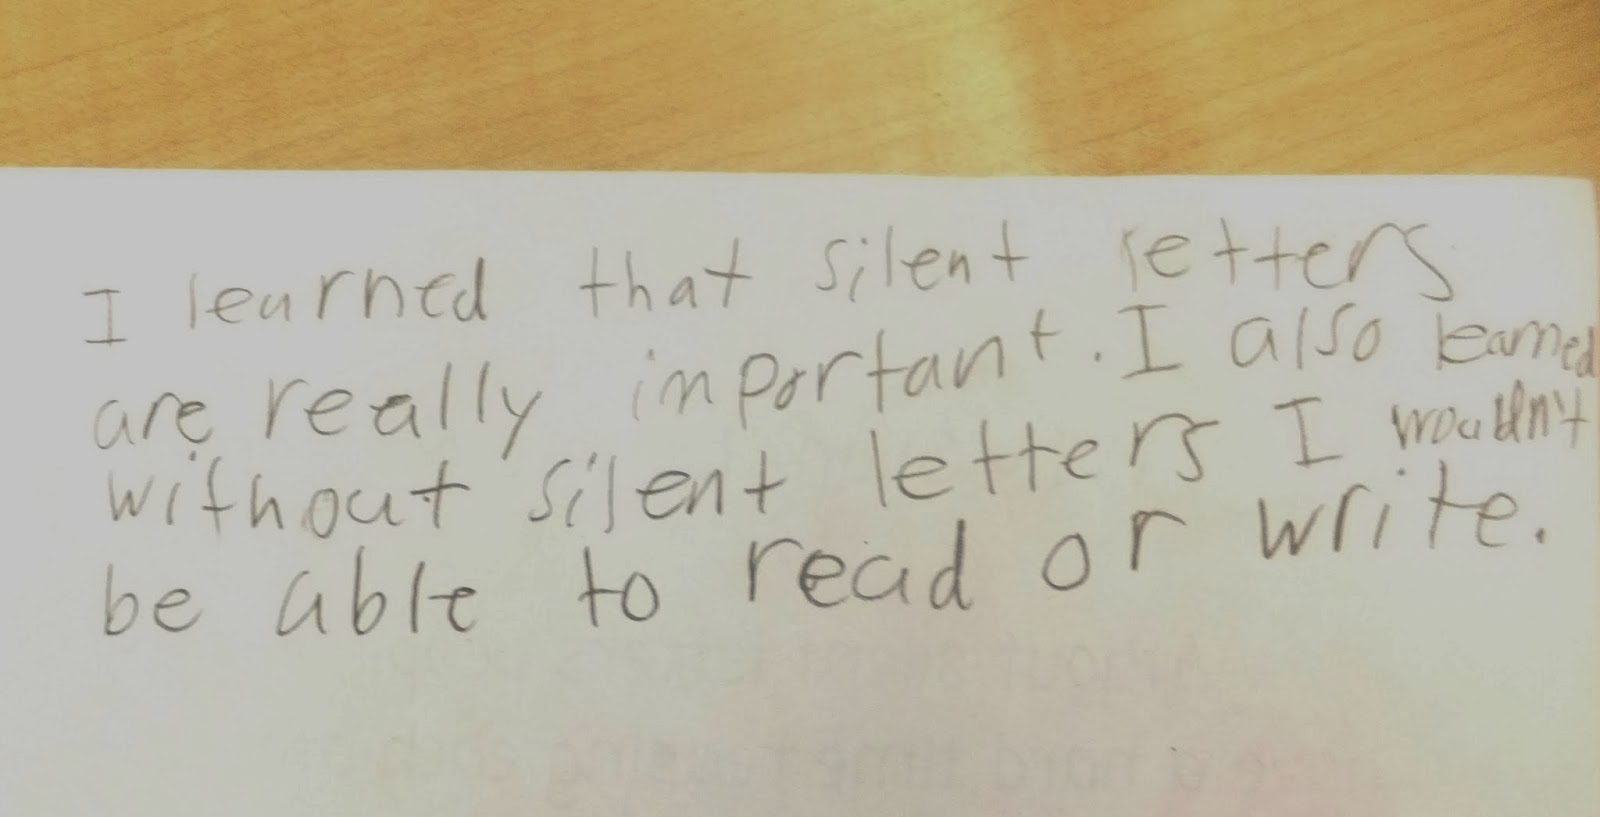 I learned that silent letters
are really important. I also learned
without silent letters I wouldn't
be able to read or write.